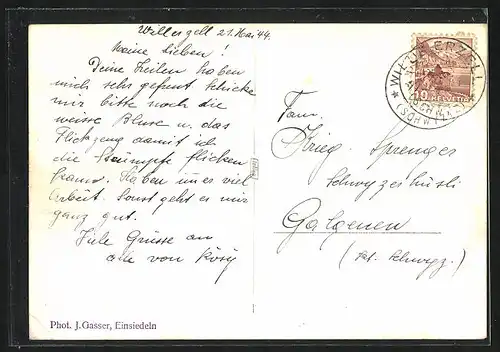 Willerzell 21. Mai 44.
Meine Lieben!
Deine Zeilen haben
mich sehr gefreut schicke
mir bitte noch die
weisse Bluse u. das
Flickzeug damit ich
die Strümpfe flicken
kann. Haben immer viel
Arbeit. Sonst geht es mir
ganz gut.
Viele Grüsse an
alle von Rösy
Phot. J. Gasser, Einsiedeln
WILLERZELL
(SCHWYZ)
10 HELVETIA
Fam.
Krieg. Sprenger
Schwyzerhüsli
Galgenen
(Kt. Schwyz.)